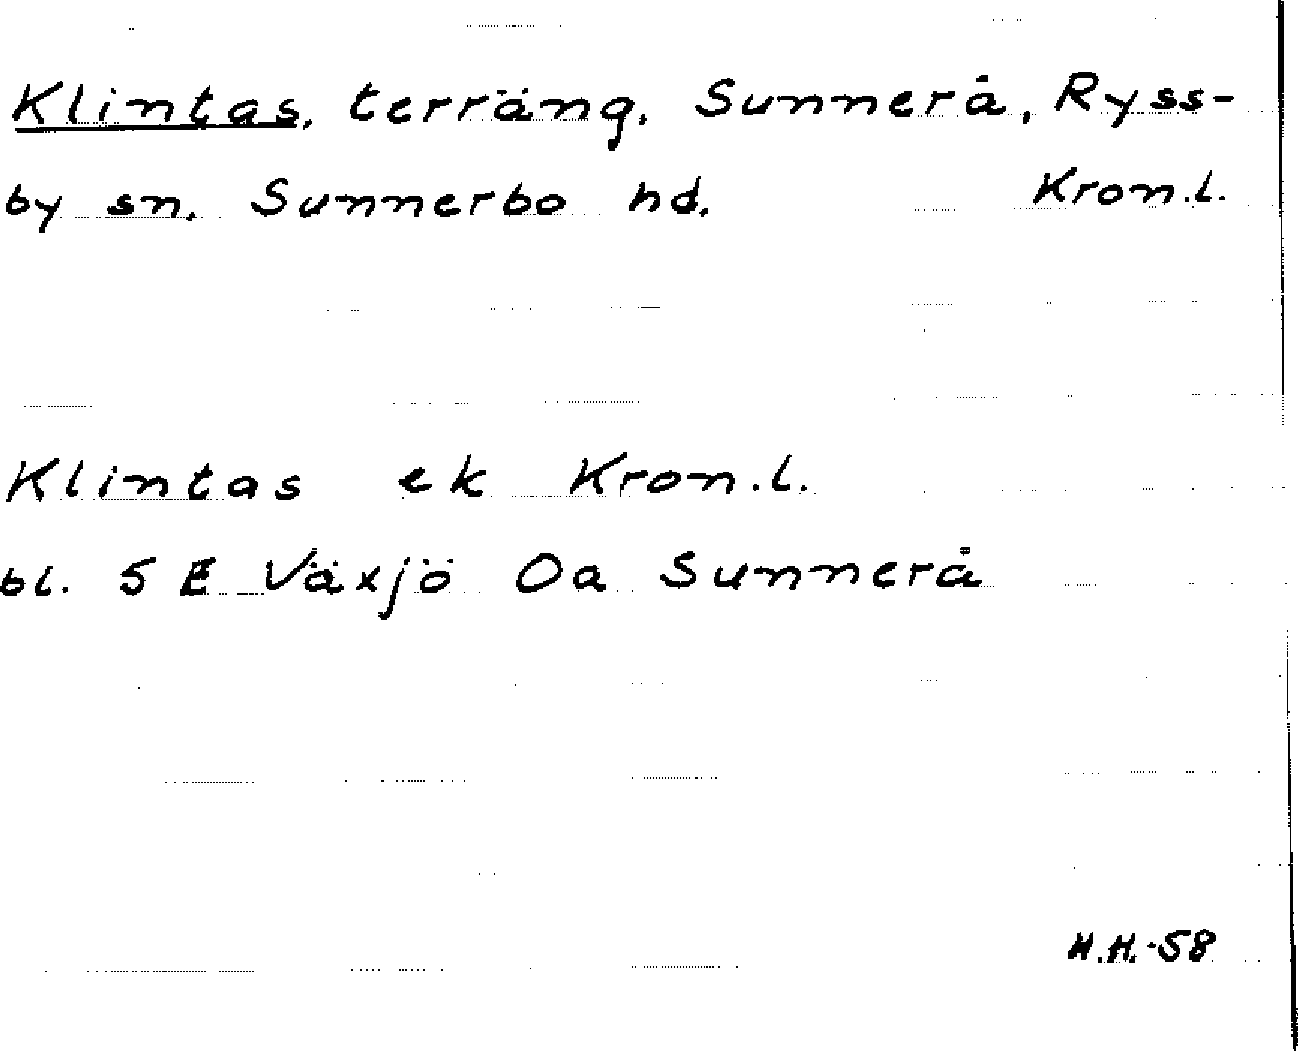 Klintas, terräng, Sunnerå, Ryss-
by sn. Sunnerbo hd. Kron.l.
Klintas ek Kron.l.
bl. 5 E Växjö Oa Sunnerå
H.H.-58